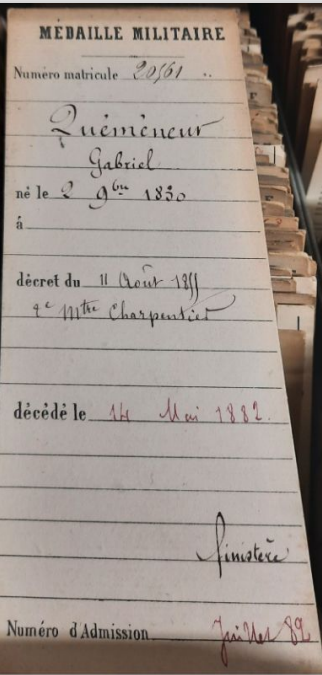 MÉDAILLE MILITAIRE
Numéro matricule 20561
Quéméneur
Gabriel
né le 2 9bre 1830
à
décret du 11 Août 1855
2e Mtre Charpentier
décédé le 14 Mai 1882.
finistère
Numéro d'Admission Juillet 82